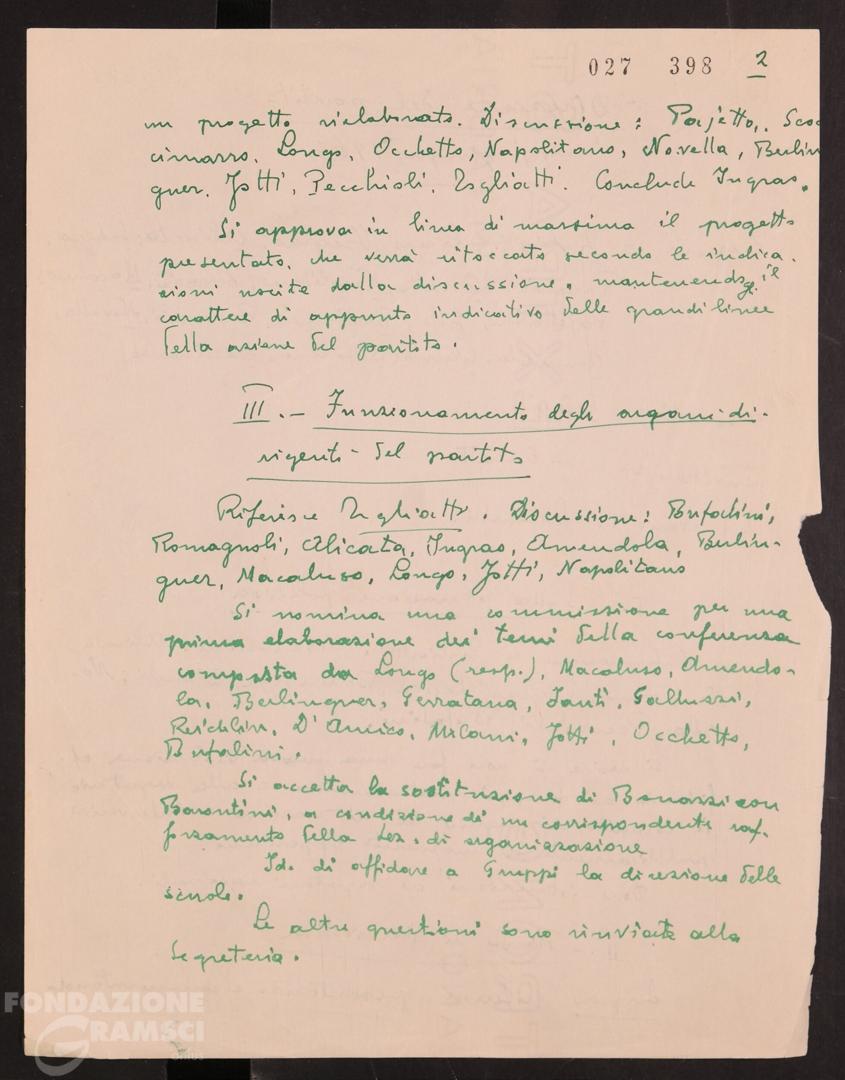 027 398 2
un progetto rielaborato. Discussione: Pajetto, Scoc
cimarro, Longo, Occhetto, Napolitano, Novella, Berlin
guer, Jotti, Pecchioli, Togliatti. Conclude Ingrao.
Si approva in linea di massima il progetto
presentato, che verrà ritoccato secondo le indica-
zioni uscite dalla discussione, mantenendogli il
carattere di appunto indicativo delle grandi linee
della azione del partito.
III.- Funzionamento degli organi di-
rigenti del partito
Riferisce Togliatti. Discussione: Bufalini,
Romagnoli, Alicata, Ingrao, Amendola, Berlin-
guer, Macaluso, Longo, Jotti, Napolitano
Si nomina una commissione per una
prima elaborazione dei temi della conferenza
composta da Longo (resp.), Macaluso, Amendo-
la, Berlinguer, Gerratana, Santi, Galluzzi,
Reichlin, D'Amico, Milani, Jotti, Occhetto,
Bufalini.
Si accetta la sostituzione di Bonazzi con
Barontini, a condizione di un corrispondente raf-
forzamento della Sez. di organizzazione
Id. di affidare a Gruppi la direzione delle
scuole.
Le altre questioni sono rinviate alla
Segreteria.
FONDAZIONE
GRAMSCI